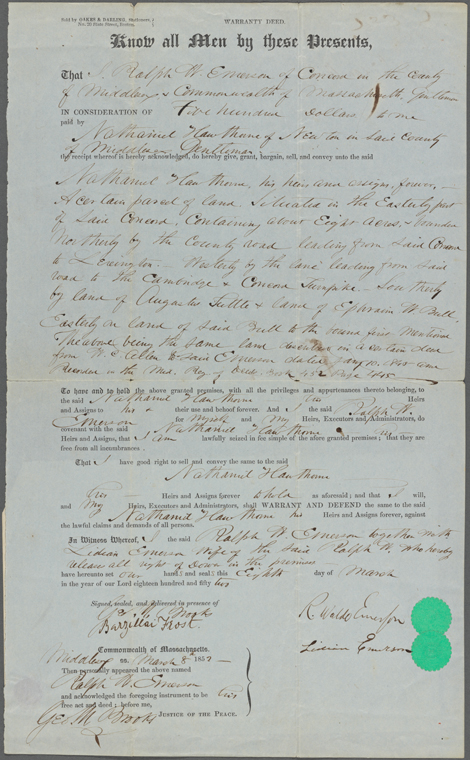 Sold by OAKES & DARLING, Stationers,
No. 20 State Street, Boston.
WARRANTY DEED.
Know all Men by these Presents,
That I Ralph W. Emerson of Concord in the County
of Middlesex & Commonwealth of Massachusetts, Gentleman
IN CONSIDERATION OF Five hundred Dollars to me
paid by Nathaniel Hawthorne of Newton in said County
of Middlesex Gentleman
the receipt whereof is hereby acknowledged, do hereby give, grant, bargain, sell, and convey unto the said
Nathaniel Hawthorne, his heirs and assigns, forever,
A certain parcel of land situated in the Easterly part
of said Concord Containing about Eight Acres, bounded
Northerly by the County road leading from said Concord
to Lexington - Westerly by the lane leading from said
road to the Cambridge & Concord Turnpike - Southerly
by land of Augustus Tuttle & land of Ephraim W. Bull
Easterly on land of said Bull to the bound first mentioned
The above being the same land described in a certain deed
from to said Emerson dated 1845 and
Recorded in the Mid. Reg of Deeds Book Page
To have and to hold the above granted premises, with all the privileges and appurtenances thereto belonging, to
the said Nathaniel Hawthorne his Heirs
and Assigns to his & their use and behoof forever. And I the said Ralph W.
Emerson for Myself and My Heirs, Executors and Administrators, do
covenant with the said Nathaniel Hawthorne his
Heirs and Assigns, that I am lawfully seized in fee simple of the afore granted premises; that they are
free from all incumbrances
That I have good right to sell and convey the same to the said
Nathaniel Hawthorne
his Heirs and Assigns forever to hold as aforesaid; and that I will,
and My Heirs, Executors and Administrators, shall WARRANT AND DEFEND the same to the said
Nathaniel Hawthorne his Heirs and Assigns forever, against
the lawful claims and demands of all persons.
In Witness Whereof, I the said Ralph W. Emerson together with
Lidian Emerson wife of the said Ralph W. who hereby
releases all right of Dower in the premises
have hereunto set our hand and seal this Eighth day of March
in the year of our Lord eighteen hundred and fifty two
Signed, sealed, and delivered in presence of
Geo. M. Brooks
Barzillai Frost.
R. Waldo Emerson
Lidian Emerson
Commonwealth of Massachusetts.
Middlesex ss. March 8th 1852
Then personally appeared the above named
Ralph W. Emerson
and acknowledged the foregoing instrument to be his
free act and deed; before me,
Geo. M. Brooks JUSTICE OF THE PEACE.